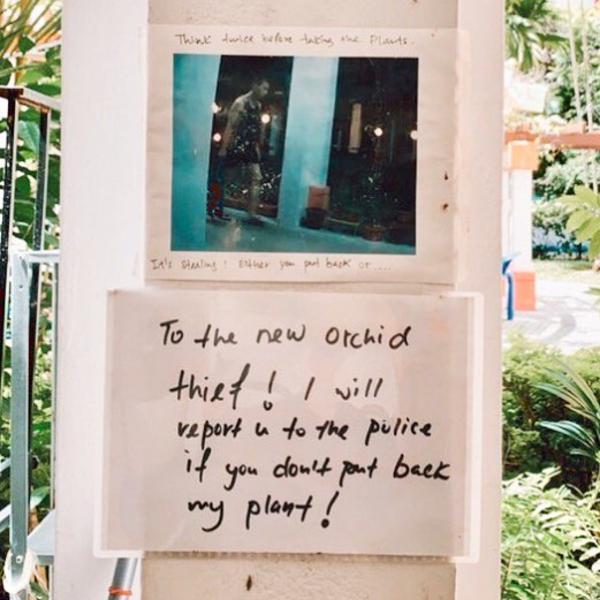 Think twice before taking the Plants.
It's stealing! Either you put back or....
To the new orchid
thief! I will
report u to the police
if you don't put back
my plant!